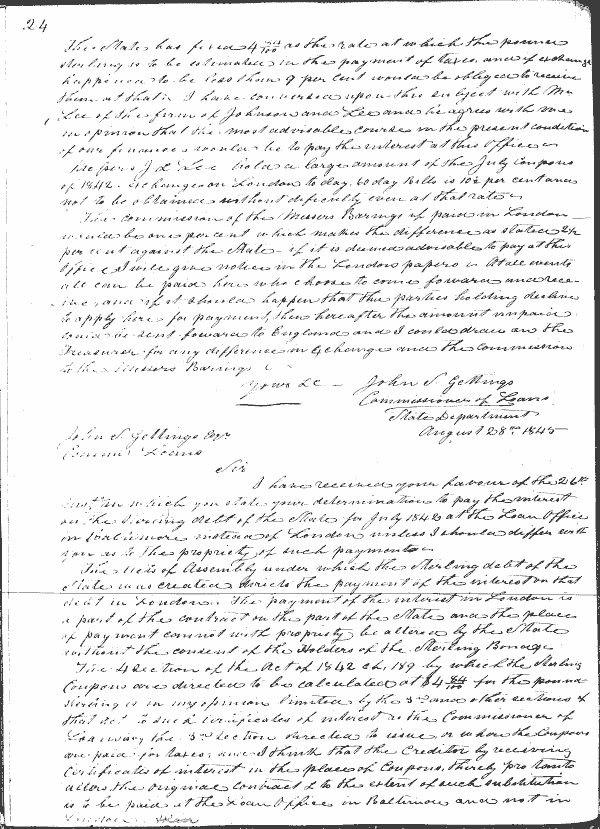 24
The State has fixed 4 44/100 as the rate at which the pound
sterling is to be estimated in the payment of taxes, and if exchange
happened to be less than 9 per cent would be obliged to receive
them at that. I have conversed upon this subject with Mr
Lee of the firm of Johnson and Lee and he agrees with me
in opinion that the most advisable course in the present condition
of our finances would be to pay the interest at this Office
Messrs J & Lee hold a large amount of the July Coupons
of 1842. Exchange on London to day, 60 day Bills is 10¼ per cent and
not to be obtained without difficulty even at that rate
The commission of the Messrs Barings if paid in London
would be one per cent which makes the difference as stated 2¼
per cent against the State - if it is deemed advisable to pay at this
Office I will give notice in the London papers. At all events
all can be paid here who choose to come foward and rece-
ive, and if it should happen that the parties holding decline
to apply here for payment, then hereafter the amount unpaid
could be sent foward to England and I could draw on the
Treasurer for any difference in Exchange and the commission
to the Messers Barings
Yours &c - John S. Gettings
Commissioner of Loans
State Department
August 28th 1845
John S. Gettings Esqr
Commr Loans
Sir
I have received your favour of the 26th
inst in which you state your determination to pay the interest
on the Sterling debt of the State for July 1842 at the Loan Office
in Baltimore instead of London unless I should differ with
you as to the propriety of such payments
The Acts of Assembly under which the Sterling debt of the
State was created directs the payment of the interest on that
debt in London. The payment of the interest in London is
a part of the contract on the part of the State and the place
of payment cannot with propriety be altered by the State
without the consent of the Holders of the Sterling Bonds
The 4 section of the Act of 1842 ch. 189 by which the Sterling
Coupons are directed to be calculated at $4 44/100 for the pound
sterling is in my opinion limited by the 3d and other sections of
that act to such certificates of interest as the Commissioner of
Loans was by the 3d section directed to issue or where the Coupons
are paid for taxes, and I think that the Creditor by receiving
Certificates of interest in the place of Coupons, thereby pro tanto
alters the original contract & to the extent of such substitution
is to be paid at the Loan Office in Baltimore and not in
London